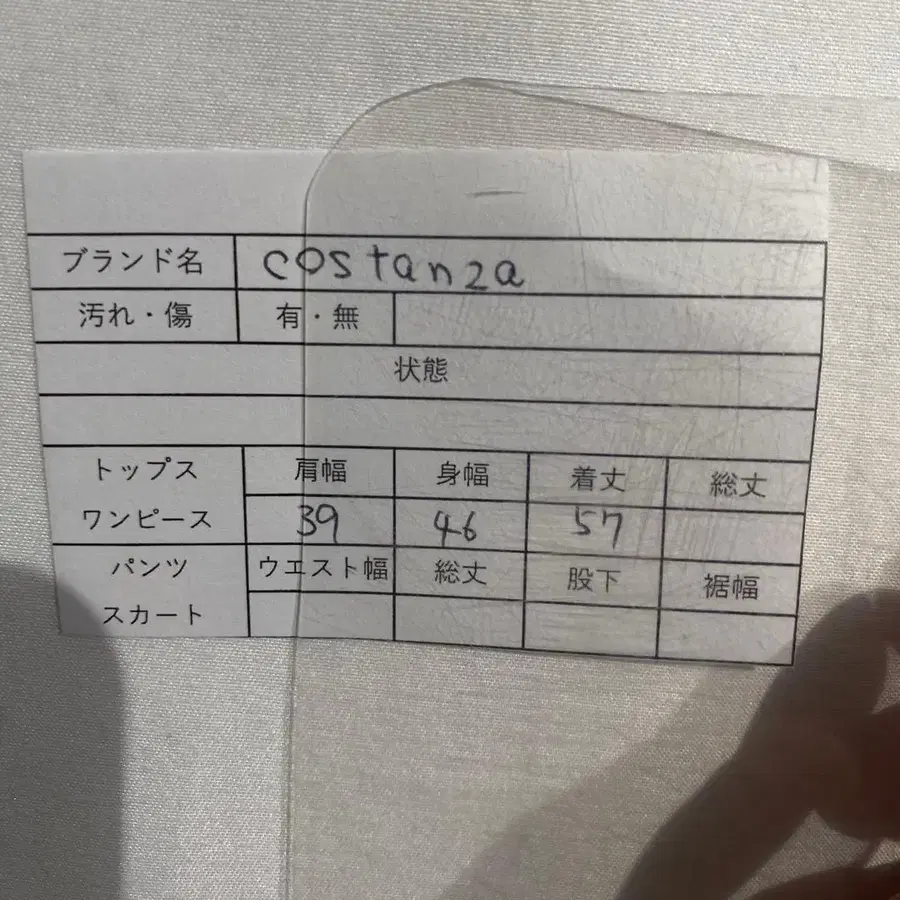 ブランド名 costanza
汚れ・傷 有・無
状態
トップス 肩幅 身幅 着丈 総丈
ワンピース 39 46 57
パンツ ウエスト幅 総丈 股下 裾幅
スカート